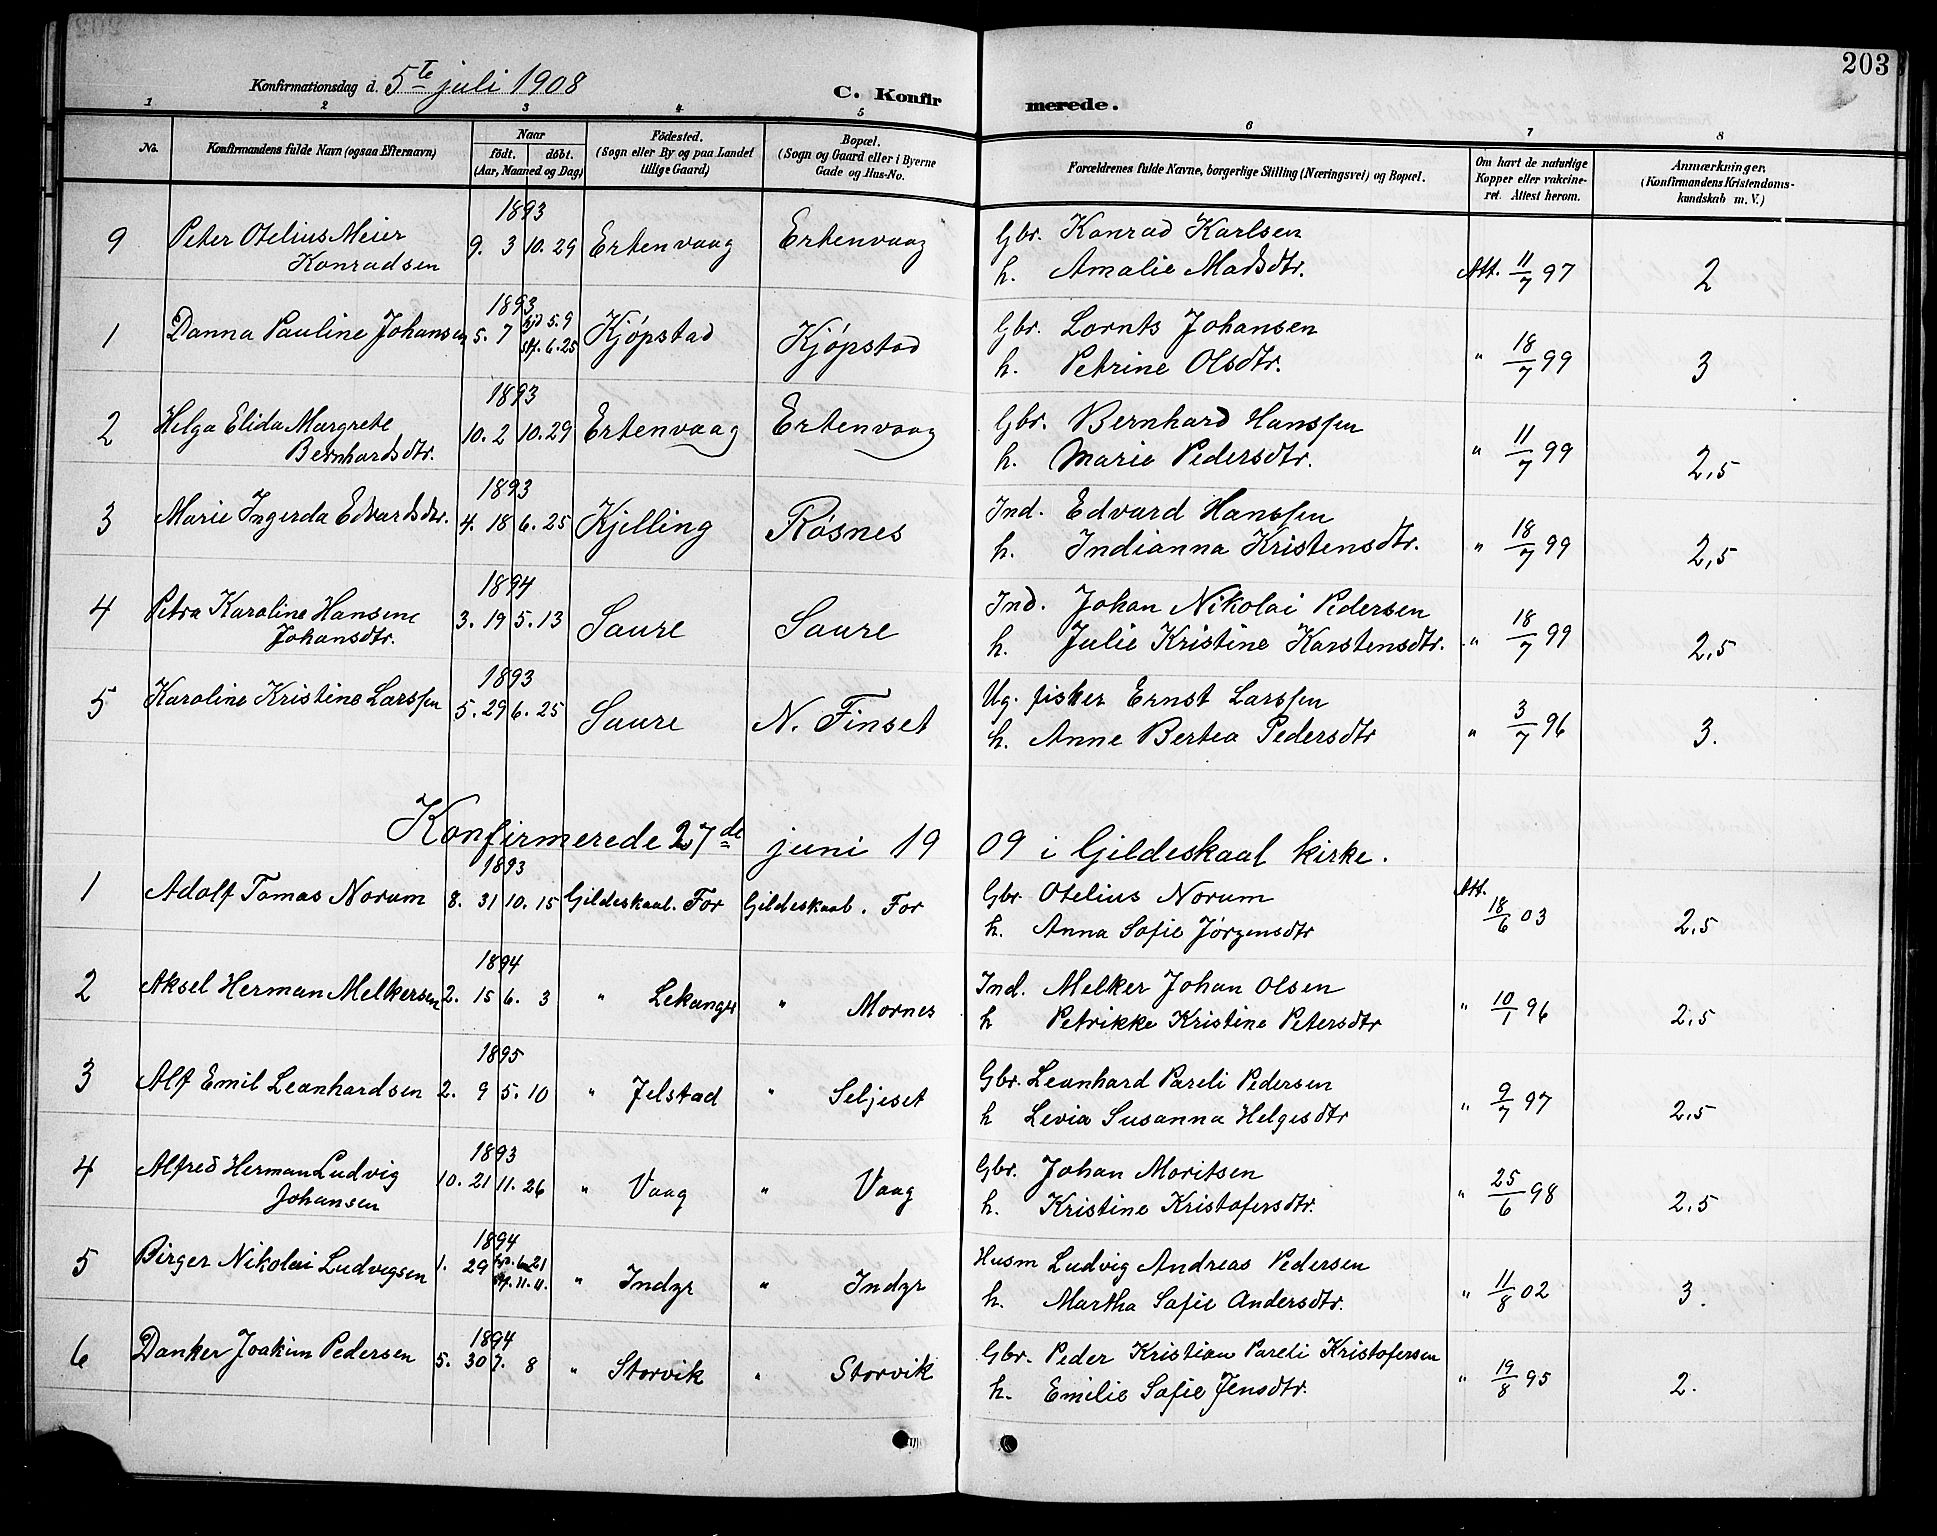 203
Konfirmationsdag d. 5te juli 1908 C. Konfirmerede.
1 2 3 4 5 6 7 8
No. Konfirmandens fulde Navn (ogsaa Efternavn) Naar født. døbt. (Aar, Maaned og Dag) Fødested. (Sogn eller By og paa Landet tillige Gaard) Bopæl. (Sogn og Gaard eller i Byerne Gade og Hus-No. Forældrenes fulde Navne, borgerlige Stilling (Næringsvei) og Bopæl. Om havt de naturlige Kopper eller vakcineret. Attest herom. Anmærkninger. (Konfirmandens Kristendomskundskab m. V.)
1893
9 Peter Otelius Meier 9. 3 10. 29 Ertenvaag Ertenvaag Gbr. Konrad Karlsen
Konradsen h. Amalie Madsdtr. Att. 11/7 97 2
1893
1 Danna Pauline Johansen 5. 7 hjd 5. 9 Kjøpstad Kjøpstad Gbr. Lornts Johansen
stf. 6. 25 h. Petrine Olsdtr. " 18/7 99 3
1893
2 Helga Elida Margrete 10. 2 10. 29 Ertenvaag Ertenvaag Gbr. Bernhard Hanssen
Bernhardsdtr. h. Marie Pedersdtr. " 11/7 99 2,5
1893
3 Marie Ingerda Edvardsdtr. 4. 18 6. 25 Kjelling Røsnes Ind. Edvard Hanssen
h. Indianna Kristensdtr. " 18/7 99 2,5
1894
4 Petra Karoline Hansene 3. 19 5. 13 Saure Saure Ind. Johan Nikolai Pedersen
Johansdtr. h. Julie Kristine Karstensdtr. " 18/7 99 2,5
1893
5 Karoline Kristine Larssen 5. 29 6. 25 Saure N. Finset Ug. fisker Ernst Larssen
h. Anne Bertea Pedersdtr " 3/7 96 3.
Konfirmerede 27de juni 1909 i Gildeskaal kirke.
1893
1 Adolf Tomas Norum 8. 31 10. 15 Gildeskaal. For Gildeskaal. For Gbr. Otelius Norum Att.
h. Anna Sofie Jørgensdtr 18/6 03 2,5
1894
2 Aksel Herman Melkersen 2. 15 6. 3 " Lekanger " Mornes Ind. Melker Johan Olsen
h Petrikke Kristine Petersdtr " 10/1 96 2,5
1895
3 Alf Emil Leonhardsen 2. 9 5. 10 " Jelstad " Seljeset Gbr. Leonhard Pareli Pedersen
h Levia Susanna Helgesdtr " 9/7 97 2,5
1893
4 Alfred Herman Ludvig 10. 21 11. 26 " Vaag " Vaag Gbr. Johan Moritsen
Johansen h. Kristine Kristofersdtr. " 25/6 98 2,5
1894
5 Birger Nikolai Ludvigsen 1. 29 hjd. 6. 21 " Indyr " Indyr Husm Ludvig Andreas Pedersen
stf. 11. 11. h. Martha Sofie Andersdtr. " 11/8 02 3.
1894
6 Danker Joakim Pedersen 5. 30 7. 8 " Storvik " Storvik Gbr. Peder Kristian Pareli Kristofersen
h. Emilie Sofie Jensdtr. " 19/8 95 2.